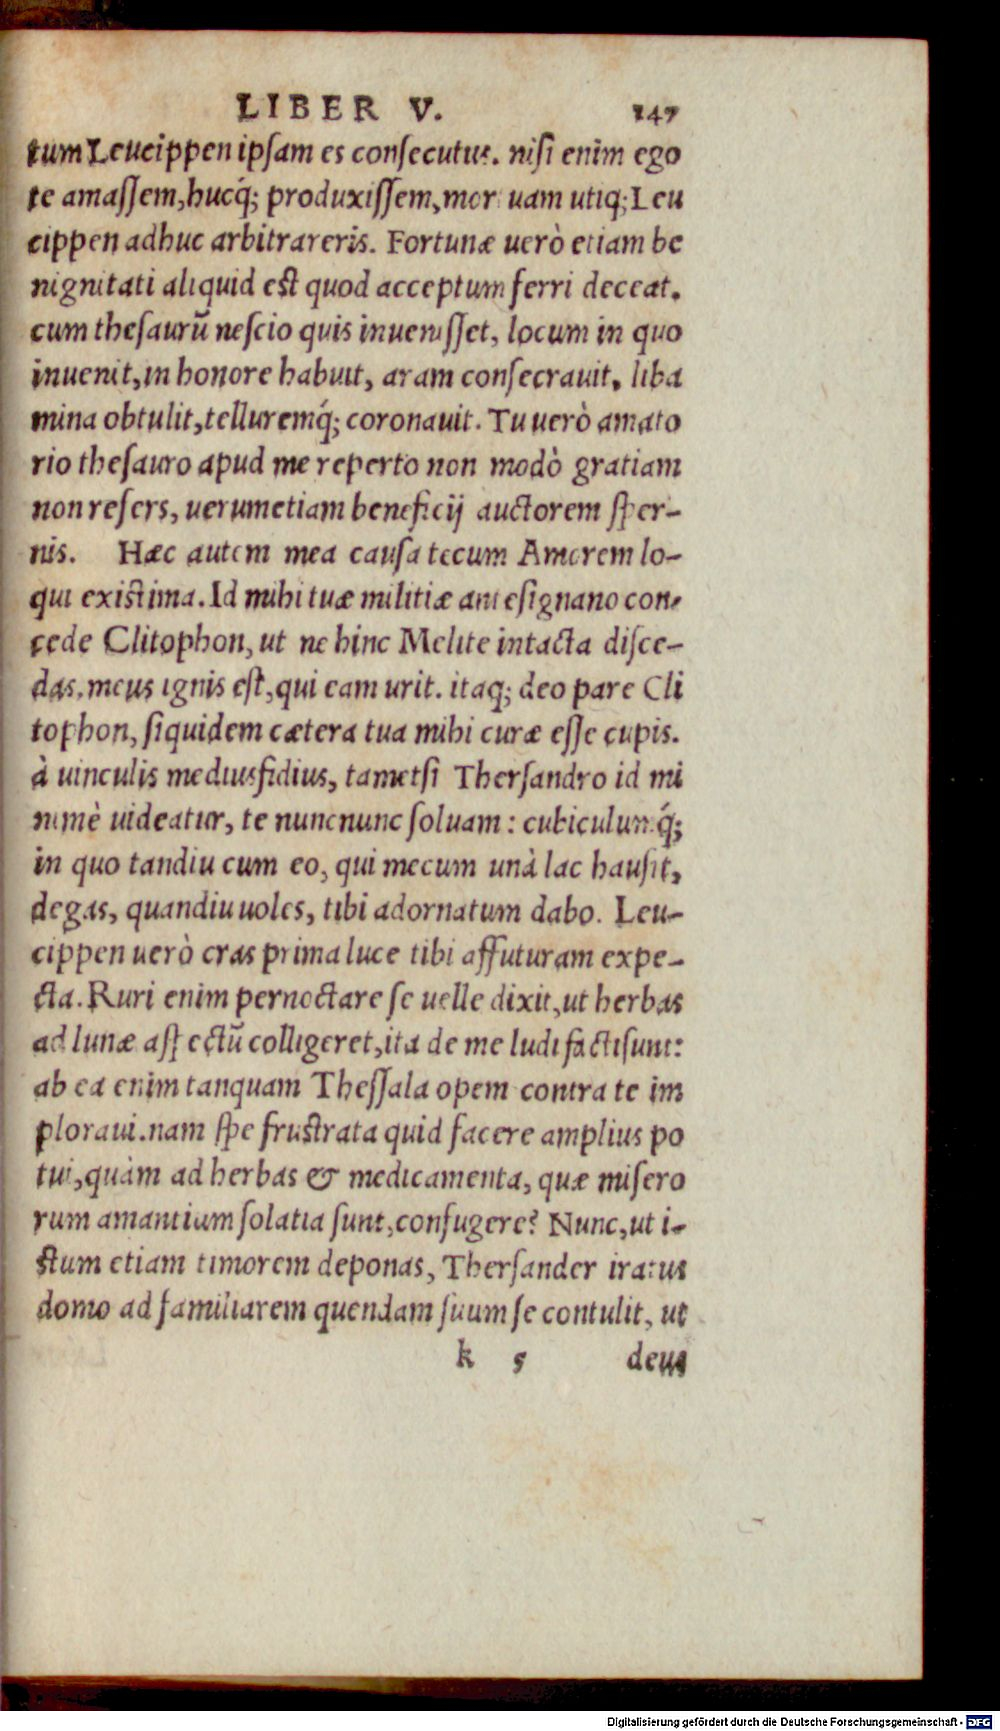 LIBER V. 147
tum Leucippen ipſam es conſecutus. niſi enim ego
te amaſſem, hucq́; produxiſſem, mortuam utiq; Leu
cippen adhuc arbitrareris. Fortunæ uerò etiam be
nignitati aliquid eſt quod acceptum ferri deceat.
cum theſaurũ neſcio quis inueniſſet, locum in quo
inuenit, in honore habuit, aram conſecrauit, liba
mina obtulit, telluremq́; coronauit. Tu uerò amato
rio theſauro apud me reperto non modò gratiam
non refers, uerumetiam beneficij auctorem ſper-
nis. Hæc autem mea cauſa tecum Amorem lo-
qui exiſtima. Id mihi tuæ militiæ anteſignano con-
cede Clitophon, ut ne hinc Melite intacta diſce-
das. meus ignis eſt, qui eam urit. itaq; deo pare Cli
tophon, ſiquidem cætera tua mihi curæ eſſe cupis.
à uinculis mediusfidius, tametſi Therſandro id mi
nimè uideatur, te nuncnunc ſoluam: cubiculumq́;
in quo tandiu cum eo, qui mecum unà lac hauſit,
degas, quandiu uoles, tibi adornatum dabo. Leu-
cippen uerò cras prima luce tibi affuturam expe-
cta. Ruri enim pernoctare ſe uelle dixit, ut herbas
ad lunæ aſpectũ colligeret, ita de me ludi facti ſunt:
ab ea enim tanquam Theſſala opem contra te im
ploraui. nam ſpe fruſtrata quid facere amplius po
tui, quàm ad herbas & medicamenta, quæ miſero
rum amantium ſolatia ſunt, confugere? Nunc, ut i-
ſtum etiam timorem deponas, Therſander iratus
domo ad familiarem quendam ſuum ſe contulit, ut
k 5 deus
Digitalisierung gefördert durch die Deutsche Forschungsgemeinschaft - DFG